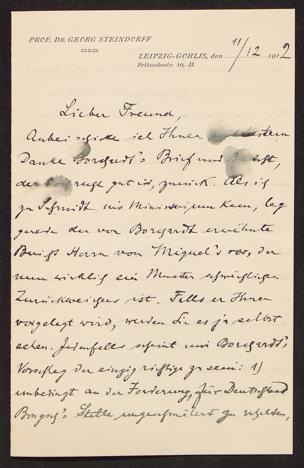 PROF. DR. GEORG STEINDORFF
LEIPZIG-GOHLIS, den 11/12 1912
Fritzschestr. 10, II.
Lieber Freund,
Anbei schicke ich Ihnen
Danke Borchardt's Brief und
der gut ist, zurück. Als ich
zu Schmidt ins Ministerium kam, lag
gerade der von Borchardt erwähnte
Bericht Herrn von Miquel's vor, der
nun wirklich ein Muster schwächlichen
Zurückweichens ist. Falls er Ihnen
vorgelegt wird, werden Sie es ja selbst
sehen. Jedenfalls scheint mir Borchardt's
Vorschlag der einzig richtige zu sein: 1)
unbedingt an der Forderung, für Deutschland
Stelle ungeschmälert zu erhalten,